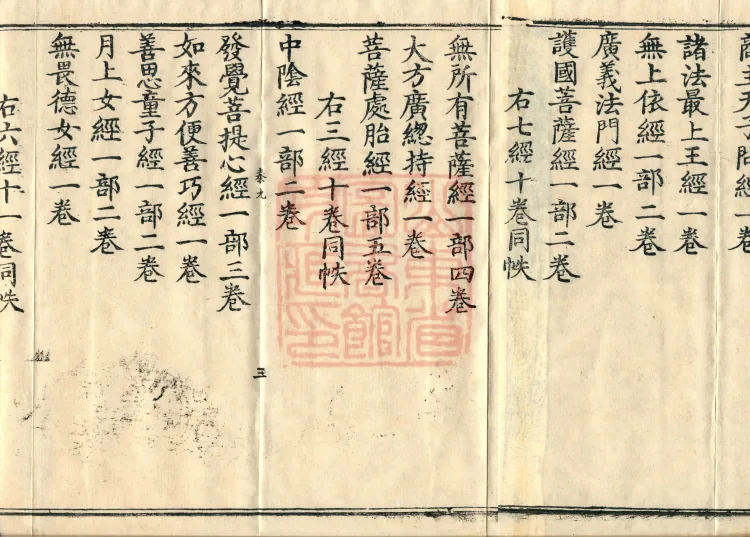 諸法最上王經一卷
無上依經一部二卷
廣義法門經一卷
護國菩薩經一部二卷
右七經十卷同帙
無所有菩薩經一部四卷
大方廣總持經一卷
菩薩處胎經一部五卷
右三經十卷同帙
中陰經一部二卷
三
發覺菩提心經一部三卷
如來方便善巧經一卷
善思童子經一部二卷
月上女經一部二卷
無畏德女經一卷
右六經十一卷同帙
山東省
圖書館